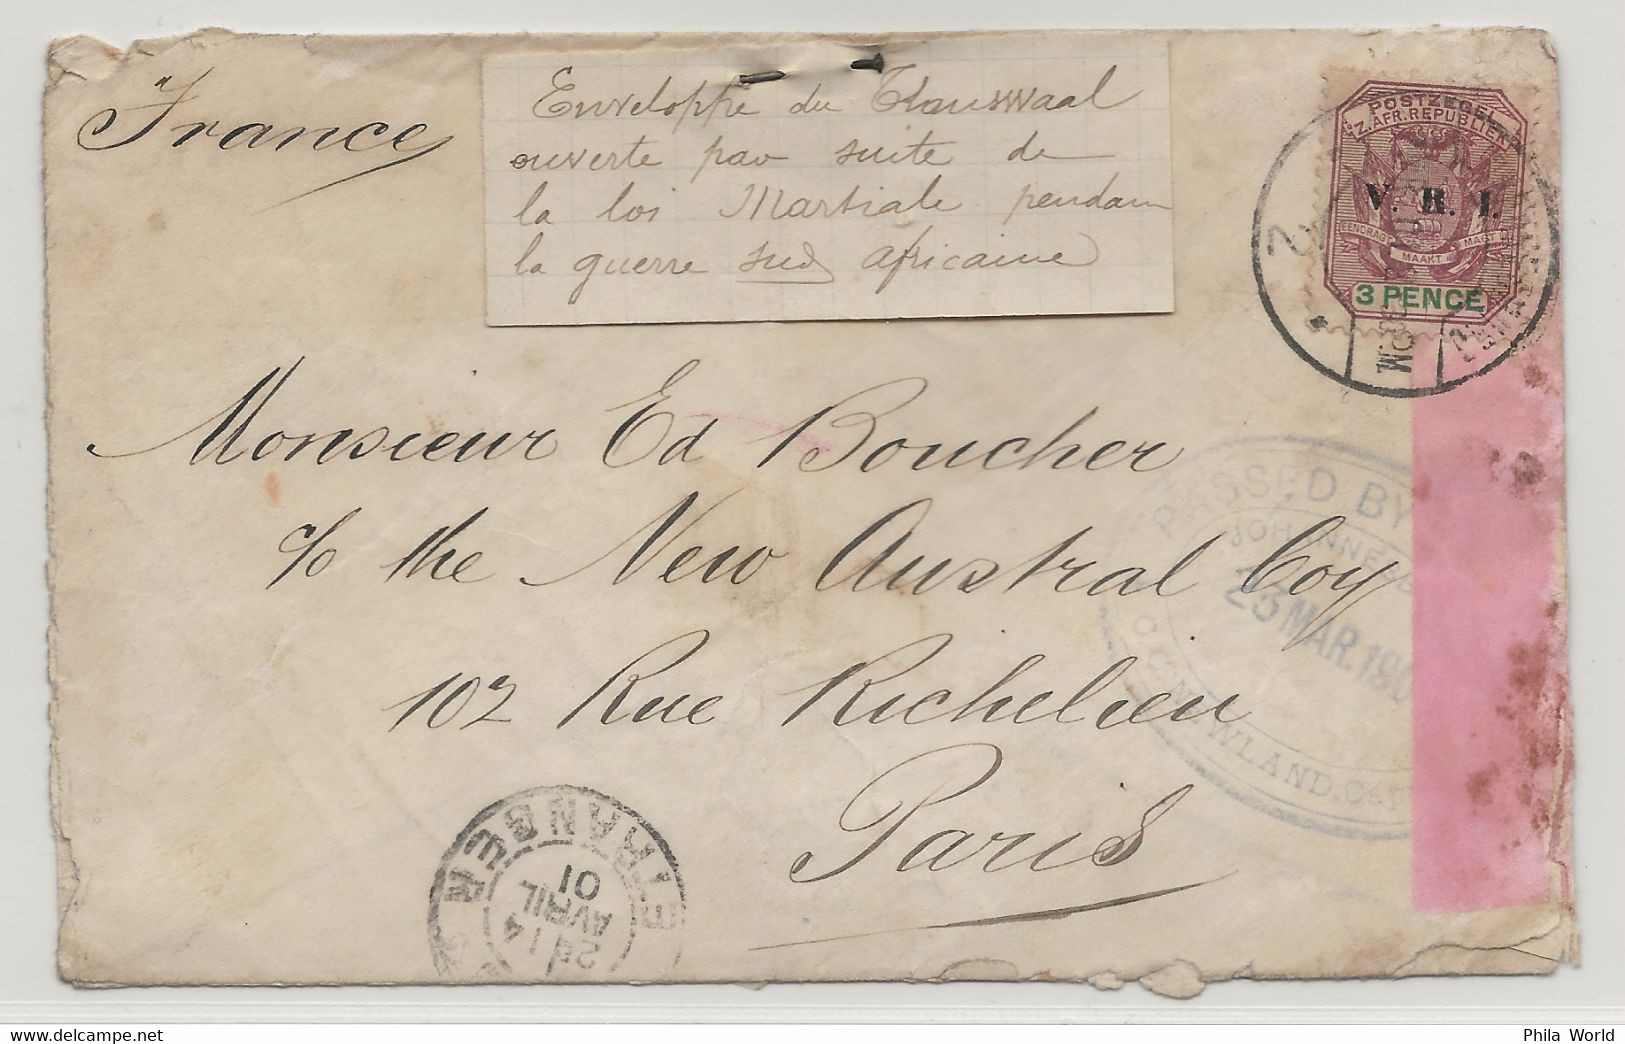 France
Enveloppe du Transwaal
ouverte par suite de
la loi Martiale pendam
la guerre sud africaine
POSTZEGEL
Z. AFR. REPUBLIEK
V. R. I.
EENDRAGT MAAKT MAGT
3 PENCE
2
Monsieur Ed Boucher
c/o the New Austral Coy
102 Rue Richelieu
Paris
PASSED BY
JOHANNESB
23 MAR. 190
NEWLAND, Cap
ETRANGER
14
AVRIL
01
Phila World